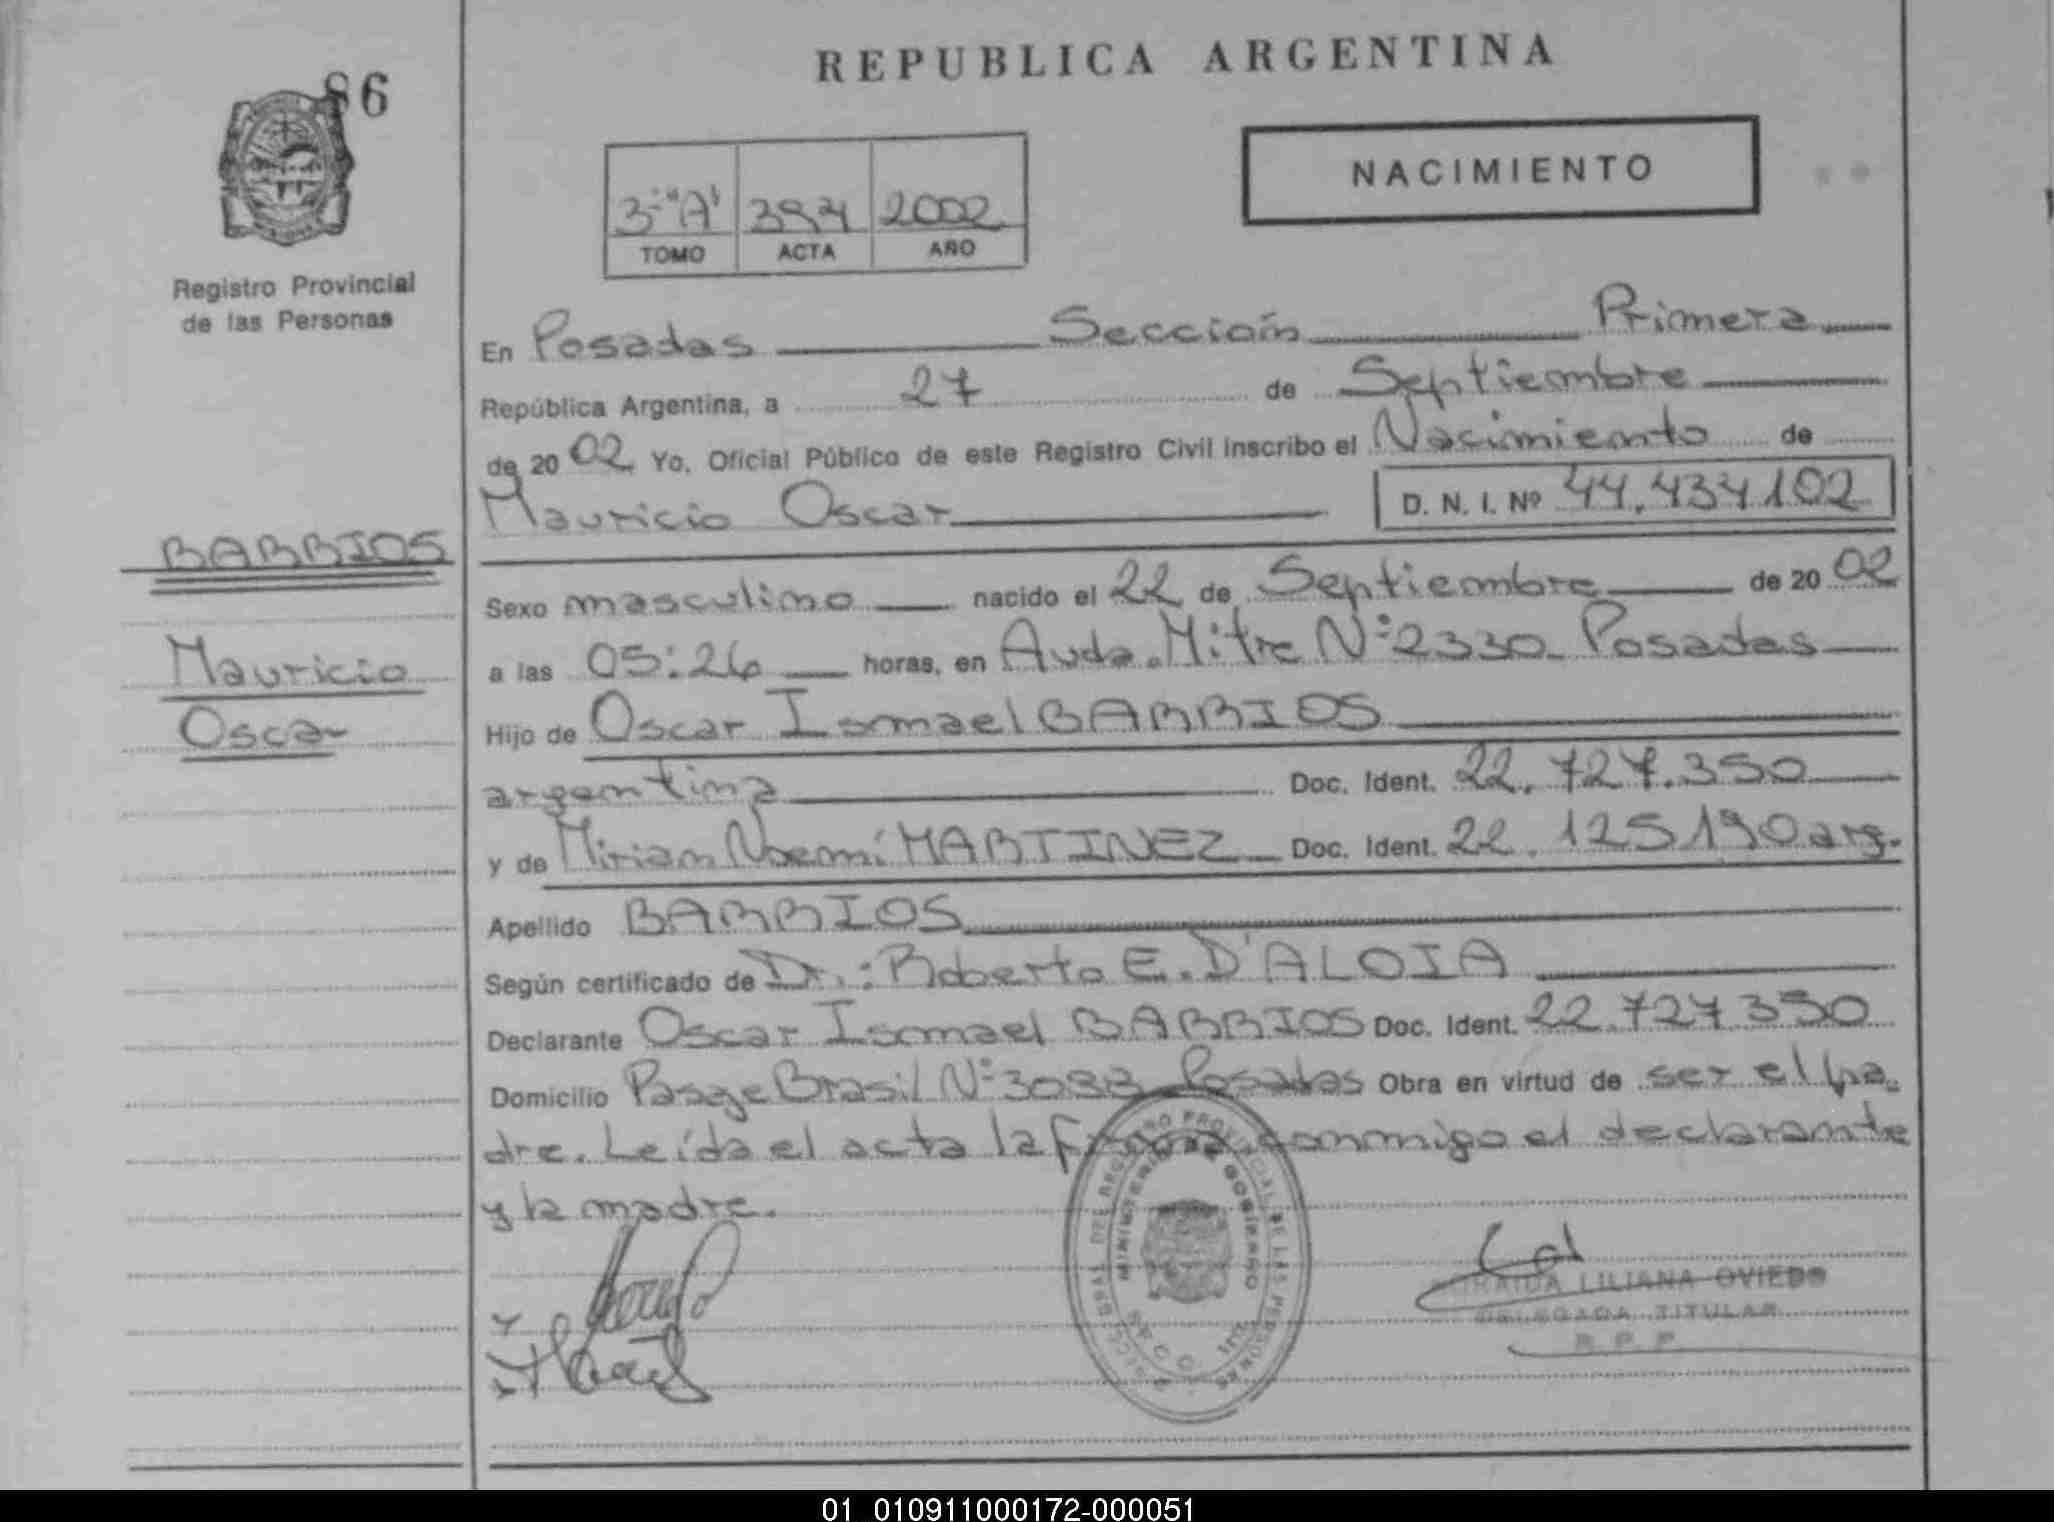 REPUBLICA ARGENTINA
86
NACIMIENTO
3-"A" 394 2002
TOMO ACTA AÑO
Registro Provincial
de las Personas
En Posadas Sección Primera
República Argentina, a 27 de Septiembre
de 2002 Yo, Oficial Público de este Registro Civil inscribo el Nacimiento de
Mauricio Oscar D. N. I. Nº 44.434102
BARRIOS
Mauricio
Oscar
Sexo masculino nacido el 22 de Septiembre de 2002
a las 05:26 horas, en Avda. Mitre Nº 2330 Posadas
Hijo de Oscar Ismael BARRIOS
argentina Doc. Ident. 22.727.350
y de Mirian Noemí MARTINEZ Doc. Ident. 22.125190 arg.
Apellido BARRIOS
Según certificado de Dr.: Roberto E. D'ALOIA
Declarante Oscar Ismael BARRIOS Doc. Ident. 22.727350
Domicilio Pasaje Brasil Nº Posadas Obra en virtud de ser el pa-
dre. Leída el acta la firma conmigo el declarante
y la madre.
MINISTERIO DE GOBIERNO
LILIANA OVIEDO
DELEGADA TITULAR
R. P. P.
01 010911000172-000051